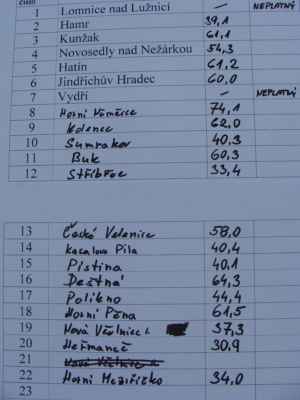 číslo
1 Lomnice nad Lužnicí – NEPLATNÝ
2 Hamr 39,1
3 Kunžak 61,1
4 Novosedly nad Nežárkou 54,3
5 Hatín 61,2
6 Jindřichův Hradec 60,0
7 Vydří – NEPLATNÝ
8 Horní Věměřice 74,1
9 Kolenec 62,0
10 Sumrakov 40,3
11 Buk 60,3
12 Stříbřec 33,4
13 Česká Velenice 58,0
14 Kacalova Pila 40,4
15 Pístina 40,1
16 Deštná 64,3
17 Polikno 44,4
18 Horní Pěna 61,5
19 Nová Včelnice 37,3
20 Heřmaneč 30,9
21
22 Horní Meziříčko 34,0
23